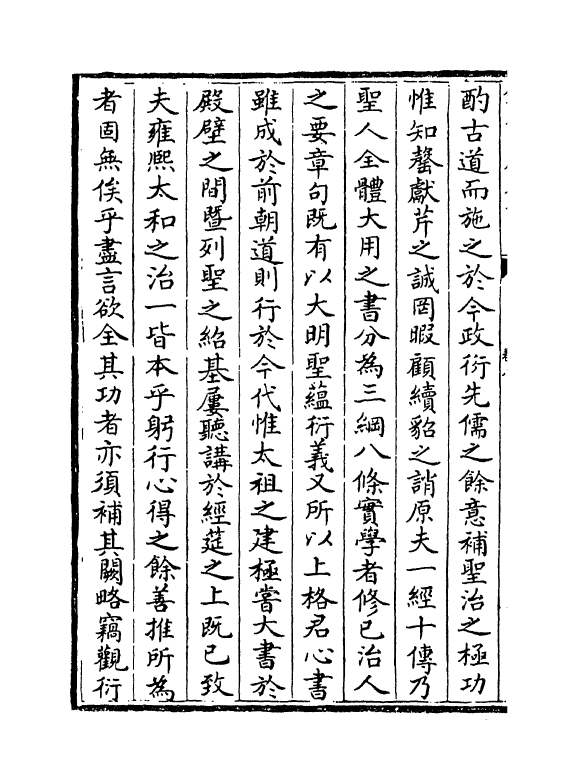 酌古道而施之於今政衍先儒之餘意補聖治之極功
惟知罄獻芹之誠罔暇顧續貂之誚原夫一經十傳乃
聖人全體大用之書分為三綱八條實學者修已治人
之要章句既有以大明聖蘊衍義又所以上格君心書
雖成於前朝道則行於今代惟太祖之建極嘗大書於
殿壁之間暨列聖之紹基屢聽講於經筵之上既已致
夫雍熙太和之治一皆本乎躬行心得之餘善推所為
者固無俟乎盡言欲全其功者亦須補其闕略竊觀衍